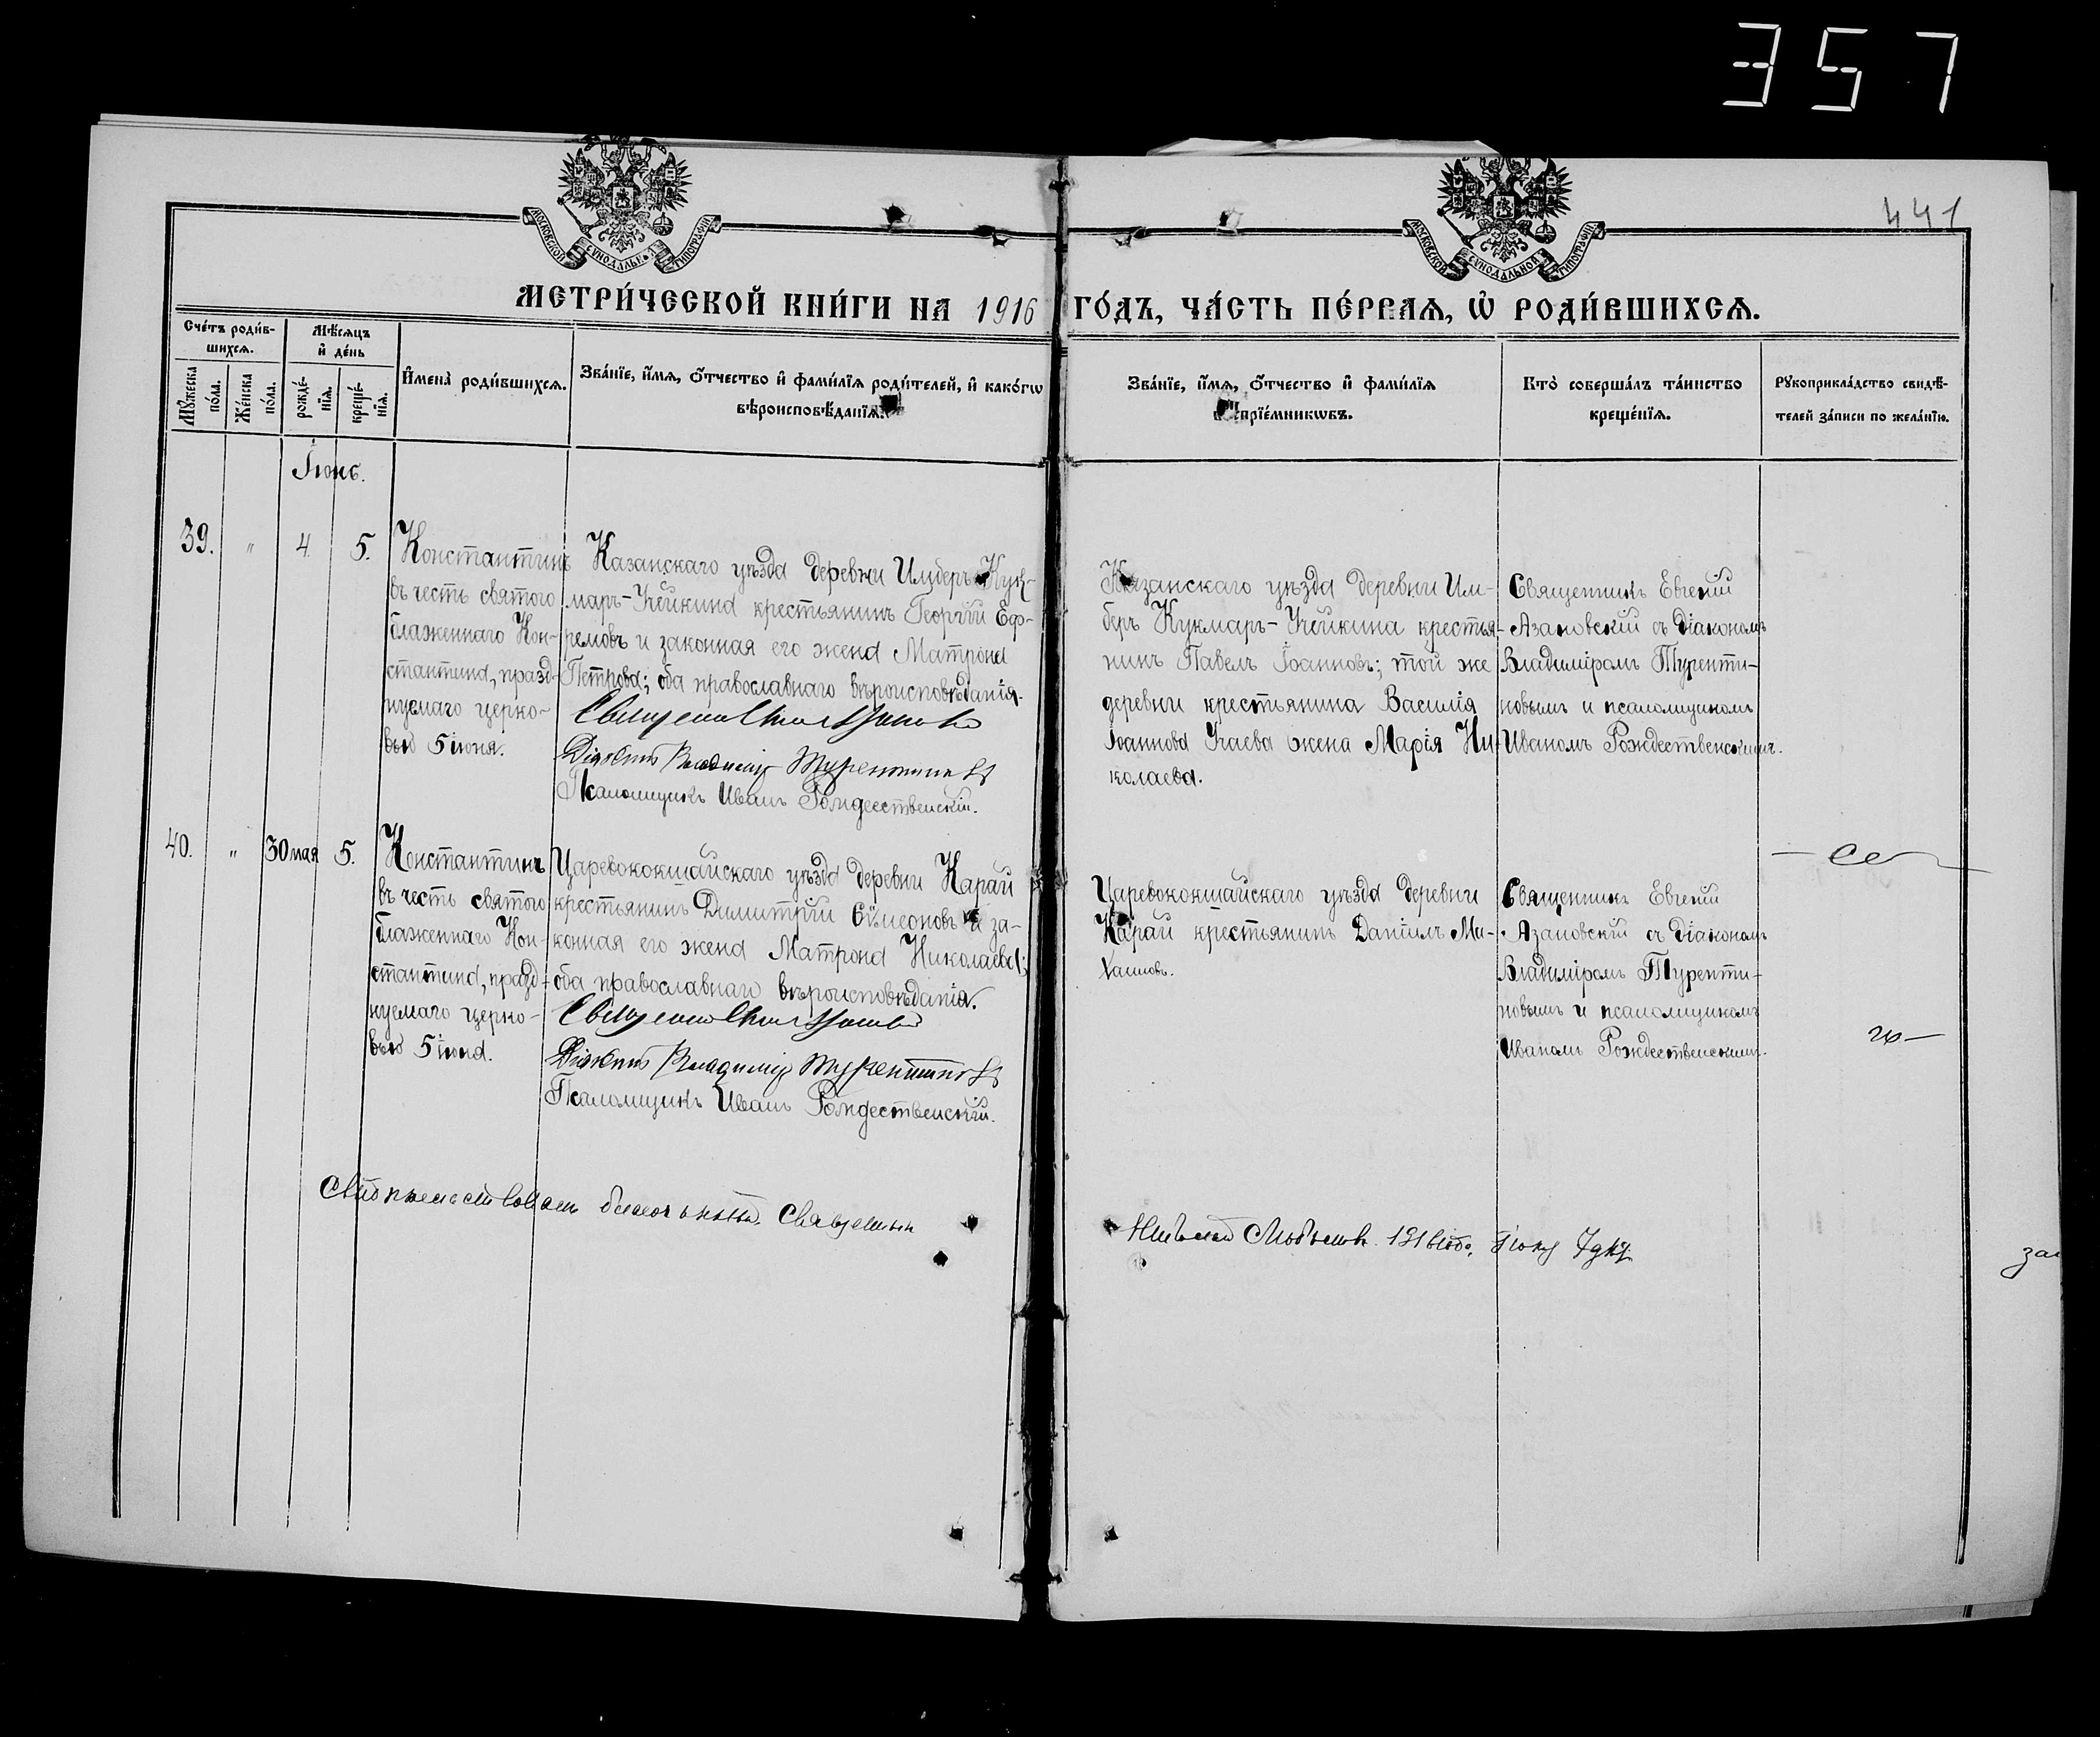 357
441
МОСКОВСКОЙ СѴНОДАЛЬНОЙ ТИПОГРАФІИ
МОСКОВСКОЙ СѴНОДАЛЬНОЙ ТИПОГРАФІИ
МЕТРИ́ЧЕСКОЙ КНИ́ГИ НА 1916 ГО́ДЪ, ЧА́СТЬ ПЕ́РВАѦ, Ѡ҆ РОДИ́ВШИХСѦ.
Сче́тъ роди́в-
шихсѧ.
Мꙋ́жеска
по́ла.
Же́нска
по́ла.
Мѣ́сѧцъ
и҆ де́нь
рожде́-
нїѧ.
креще́-
нїѧ.
И҆мена̀ роди́вшихсѧ.
Зва́нїе, и҆́мѧ, ѻ҆́тчество и҆ фами́лїѧ роди́телей, и҆ како́гѡ
вѣроисповѣ́данїѧ.
Зва́нїе, и҆́мѧ, ѻ҆́тчество и҆ фами́лїѧ
воспрїе́мникѡвъ.
Кто̀ соверша́лъ та́инство
креще́нїѧ.
Рꙋкоприкла́дство свидѣ́-
телей за́писи по жела́нїю.
Іюнь.
39.
"
4.
5.
Константинъ
въ честь святого
блаженнаго Кон-
стантина, празд-
нуемаго церко-
вью 5 іюня.
Казанскаго уѣзда деревни Илберъ Кук-
маръ-Учейкина крестьянинъ Георгій Еф-
ремовъ и законная его жена Матрона
Петрова; оба православнаго вѣроисповѣданія.
Діаконъ Владиміръ Турентиновъ
Псаломщикъ Иванъ Рождественскій.
Казанскаго уѣзда деревни Ил-
беръ Кукмаръ-Учейкина крестья-
нинъ Павелъ Іоанновъ; той же
деревни крестьянина Василія
Іоаннова Учаева жена Марія Ни-
колаева.
Священникъ Евгеній
Азановскій съ діакономъ
Владиміромъ Туренти-
новымъ и псаломщикомъ
Иваномъ Рождественскимъ.
40.
"
30 мая
5.
Константинъ
въ честь святого
блаженнаго Кон-
стантина, празд-
нуемаго церко-
вью 5 іюня.
Царевококшайскаго уѣзда деревни Карай
крестьянинъ Димитрій Симеоновъ и за-
конная его жена Матрона Николаева;
оба православнаго вѣроисповѣданія.
Діаконъ Владиміръ Турентиновъ
Псаломщикъ Иванъ Рождественскій.
Царевококшайскаго уѣзда деревни
Карай крестьянинъ Даніилъ Ми-
хаиловъ.
Священникъ Евгеній
Азановскій съ діакономъ
Владиміромъ Туренти-
новымъ и псаломщикомъ
Иваномъ Рождественскимъ.